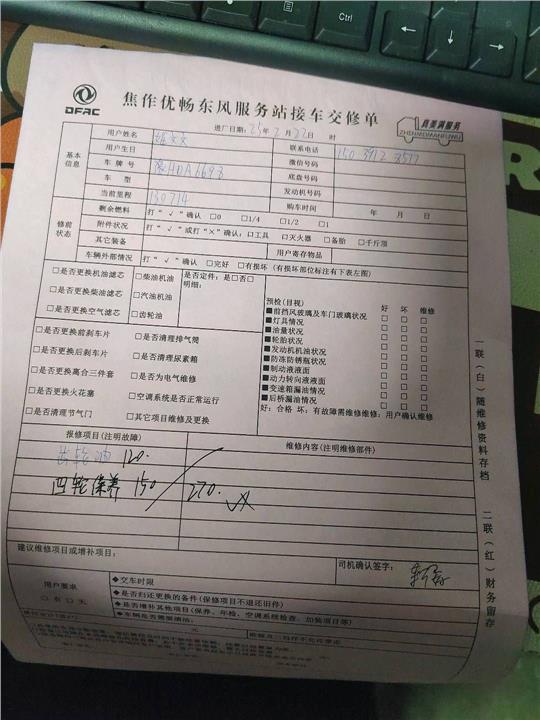 Ctrl
DFAC
焦作优畅东风服务站接车交修单
真美满服务
ZHENMEIMANFUWU
进厂日期：25年2月22日 时
基本信息
用户姓名
联系电话 150 3912 3577
用户生日
微信号码
车牌号 豫HDA6693
底盘号码
车 型
发动机号码
当前里程 130714
购车时间 年 月 日
修前状态
剩余燃料 打“√”确认 □0 □1/4 □1/2 □1
附件状况 打“√”或打“×”确认：□工具 □灭火器 □备胎 □千斤顶
其它装备 用户寄存物品
车辆外部情况 打“√”确认 □完好 □有损坏（有损坏部位标注有下表左图）
□是否更换机油滤芯 □柴油机油 是否定件：是□否□
明细：
□是否更换柴油滤芯 □汽油机油
□是否更换空气滤芯 □齿轮油
□是否更换前刹车片 □是否清理排气筒
□是否更换后刹车片 □是否清理尿素箱
□是否更换离合三件套 □是否为电气维修
□是否更换火花塞 □空调系统是否正常运行
□是否清理节气门 □其它项目维修及更换
预检（目视） 好 坏 维修
■前挡风玻璃及车门玻璃状况 □ □ □
■灯具情况 □ □ □
■油量状况 □ □ □
■轮胎状况 □ □ □
■发动机机油状况 □ □ □
■防冻防锈瓶状况 □ □ □
■制动液液面 □ □ □
■动力转向液液面 □ □ □
■变速箱漏油情况 □ □ □
■后桥漏油情况 □ □ □
好：合格 坏：有故障需维修维修：用户确认维修
报修项目（注明故障） 维修内容（注明维修部件）
齿轮油 120.
四轮保养 150 270.
建议维修项目或增补项目：
司机确认签字：
用户要求
□有 □无
◆交车时限
◆是否归还更换的备件（保修项目不退还旧件）
◆是否增补其他项目（保养、年检、空调系统检查、加装项目等）
◆车辆是否需要清洁：
一联（白）随维修资料存档
二联（红）财务留存